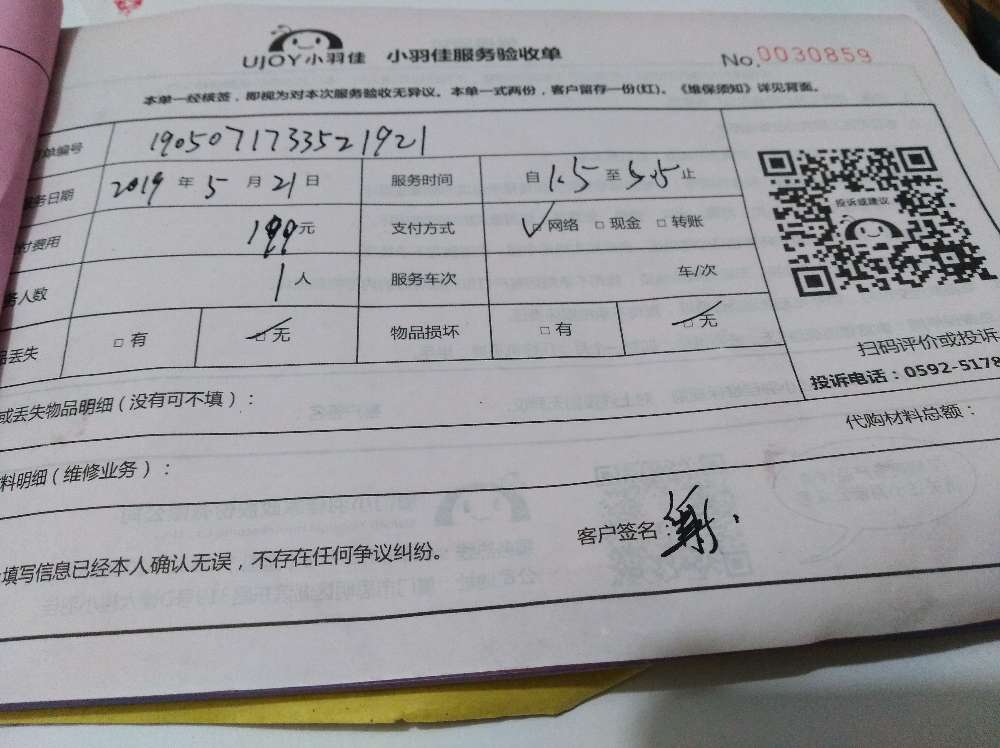 UJOY小羽佳 小羽佳服务验收单 No.0030859
本单一经核签，即视为对本次服务验收无异议。本单一式两份，客户留存一份(红)。《维保须知》详见背面。
单编号 1905071733521921
务日期 2019 年 5 月 21 日 服务时间 自 至 止
付费用 199元 支付方式 ☑网络 □ 现金 □ 转账
投诉或建议
人数 1 人 服务车次 车/次
丢失 □ 有 ☑ 无 物品损坏 □ 有 ☑ 无
扫码评价或投诉
投诉电话：0592-5178
或丢失物品明细(没有可不填)：
代购材料总额：
料明细(维修业务)：
填写信息已经本人确认无误，不存在任何争议纠纷。 客户签名：谢